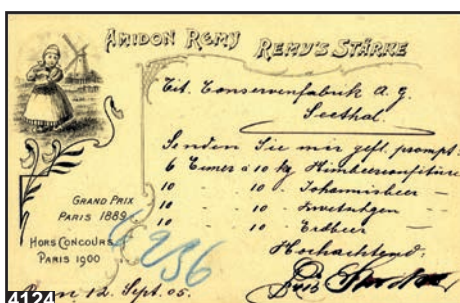 AMIDON REMY REMY'S STÄRKE
Tit. Conservenfabrik A. G.
Seethal.
Senden Sie mir gefl. prompt:
6 Eimer à 10 kg Himbeerconfitüre
10 - - 10 - Johannisbeer -
10 - - 10 - Zwetschgen
10 - - 10 - Erdbeer -
GRAND PRIX
PARIS 1889
HORS CONCOURS
PARIS 1900
Hochachtend:
12. Sept. 05.
4124